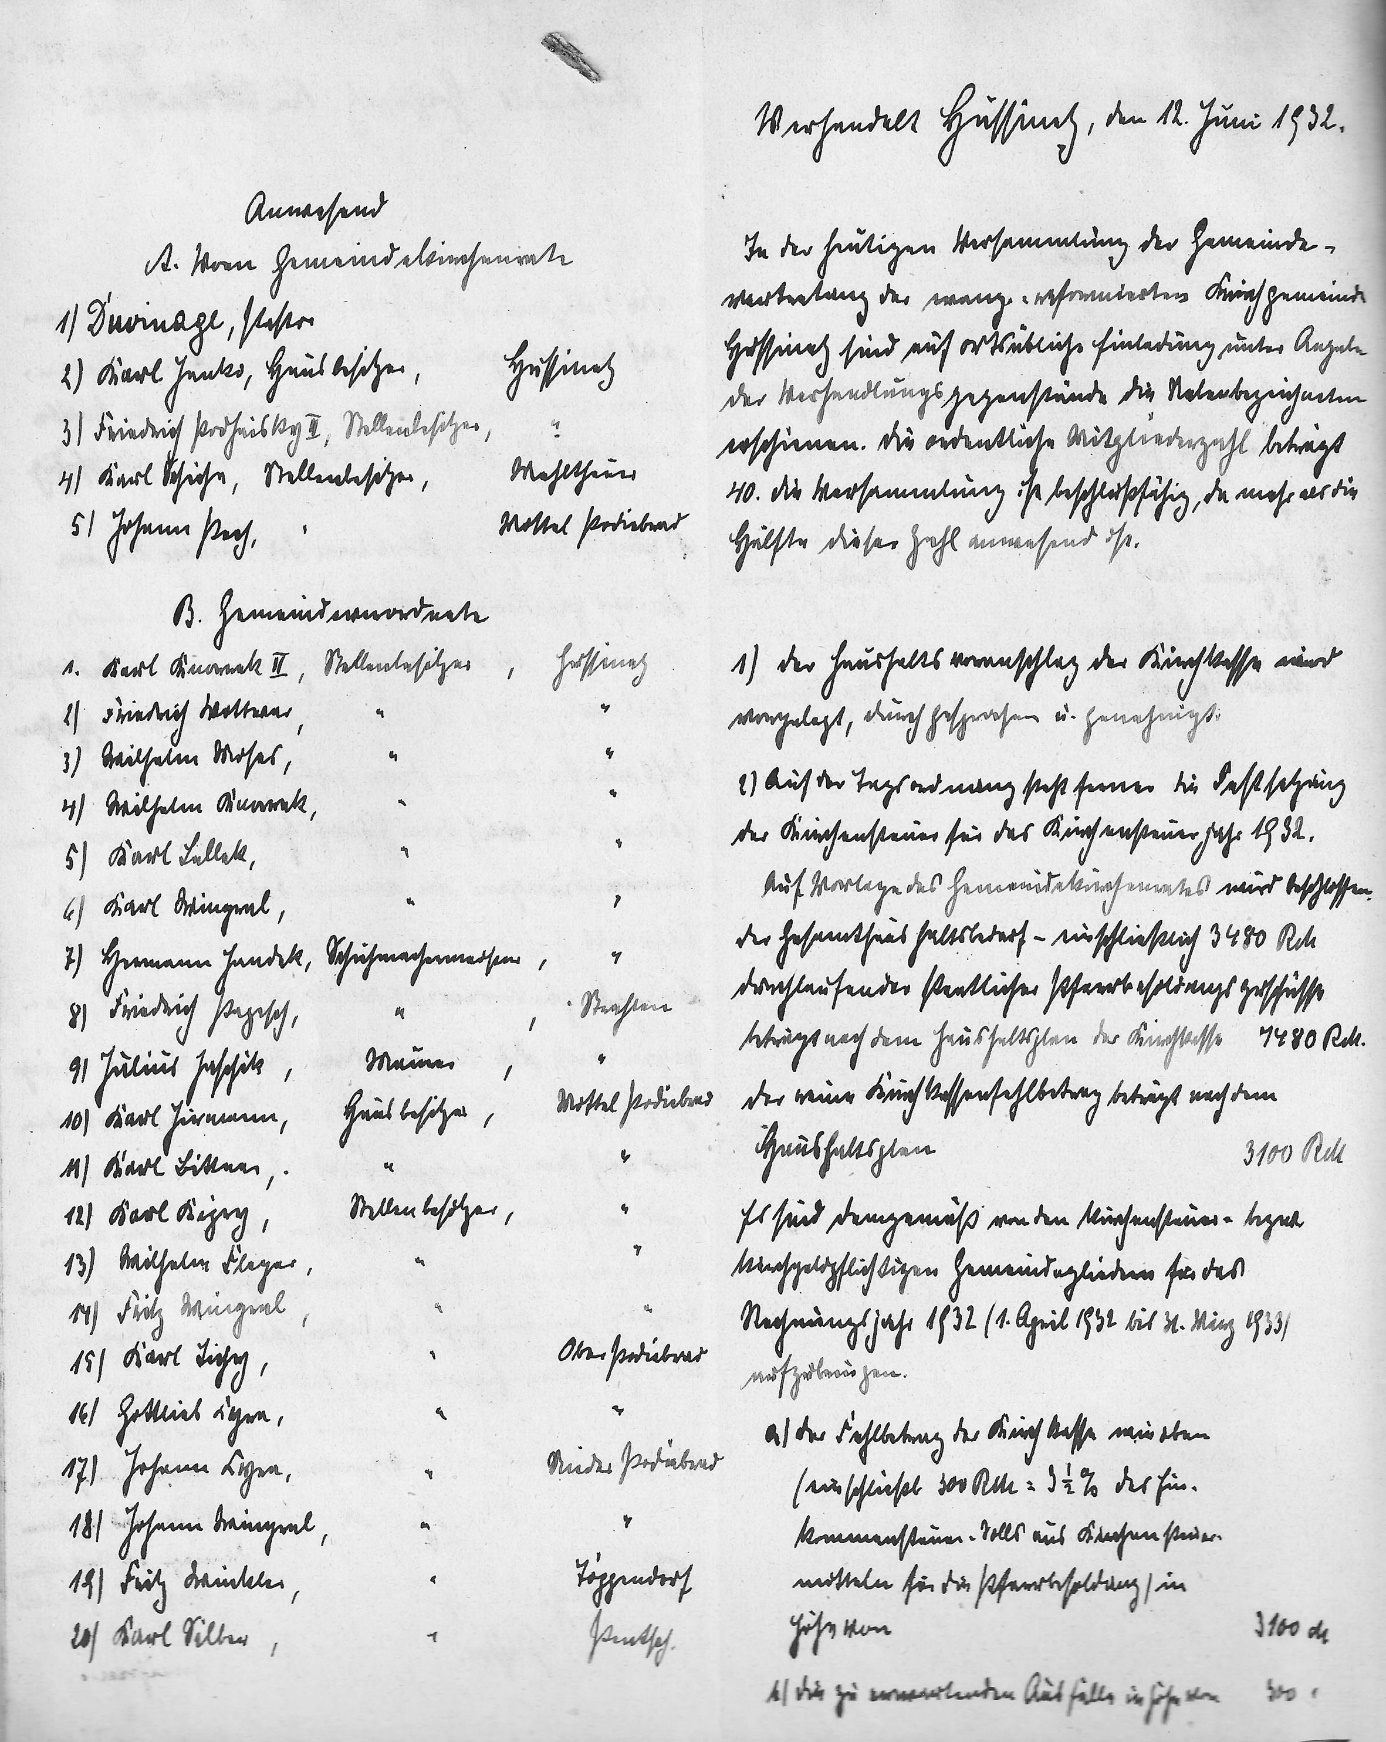 Verhandelt Hussinetz, den 12. Juni 1932.
Anwesend
A. Vom Gemeindekirchenrate
1) Duvinage, Pastor
2) Karl Janko, Hausbesitzer, Hussinetz
3) Friedrich Podhaisky II, Stellenbesitzer, "
4) Karl Schiche, Stellenbesitzer, Mehltheuer
5) Johann Pech, " Mittel Podiebrad
B. Gemeindeverordnete
1. Karl Knorrek II, Stellenbesitzer, Hussinetz
2) Friedrich Wottwar, " "
3) Wilhelm Moses, " "
4) Wilhelm Knorrek, " "
5) Karl Lellek, " "
6) Karl Wingral, " "
7) Hermann Handek, Schuhmachermeister, "
8) Friedrich " , Strehlen
9) Julius Jaschik, Maurer, "
10) Karl Hirmann, Hausbesitzer, Mittel Podiebrad
11) Karl Bittner, " "
12) Karl Stellenbesitzer, "
13) Wilhelm Fleger, " "
14) Fritz Wingral, " "
15) Karl Tichy, " Ober Podiebrad
16) Gottlieb " "
17) Johann " Nieder Podiebrad
18) Johann Wingral, " "
19) Fritz Winkler, " Töppendorf
20) Karl Silber, " Pentsch.
In der heutigen Versammlung der Gemeinde-
vertretung der evang.-reformierten Kirchgemeinde
Hussinetz sind auf ortsübliche Einladung unter Angabe
der Verhandlungsgegenstände die Nebenbezeichneten
erschienen. Die ordentliche Mitgliederzahl beträgt
40. Die Versammlung ist beschlußfähig, da mehr als die
Hälfte dieser Zahl anwesend ist.
1) Der Haushaltsvoranschlag der Kirchkasse wird
vorgelegt, durchgesprochen u. genehmigt.
2) Auf der Tagesordnung steht ferner die Festsetzung
der Kirchensteuer für das Kirchensteuerjahr 1932.
Auf Vorlage des Gemeindekirchenrates wird beschlossen.
Der Gesamthaushaltsbedarf - einschließlich 3480 RM
durchlaufender staatlicher Pfarrbesoldungszuschüsse
beträgt nach dem Haushaltsplan der Kirchkasse 7480 RM.
Der reine Kirchkassenfehlbetrag beträgt nach dem
Haushaltsplan 3100 RM
Es sind demgemäß von den kirchensteuer- bezw.
kirchgeldpflichtigen Gemeindegliedern für das
Rechnungsjahr 1932 (1. April 1932 bis 31. März 1933)
aufzubringen.
a) der Fehlbetrag der Kirchkasse wie oben
(einschließl. 300 RM = 3 ½ % des Ein-
kommensteuer-Solls aus Kirchensteuer-
mitteln für die Pfarrbesoldung) in
Höhe von 3100 M
b) die zu erwartenden Ausfälle in Höhe von 300 "